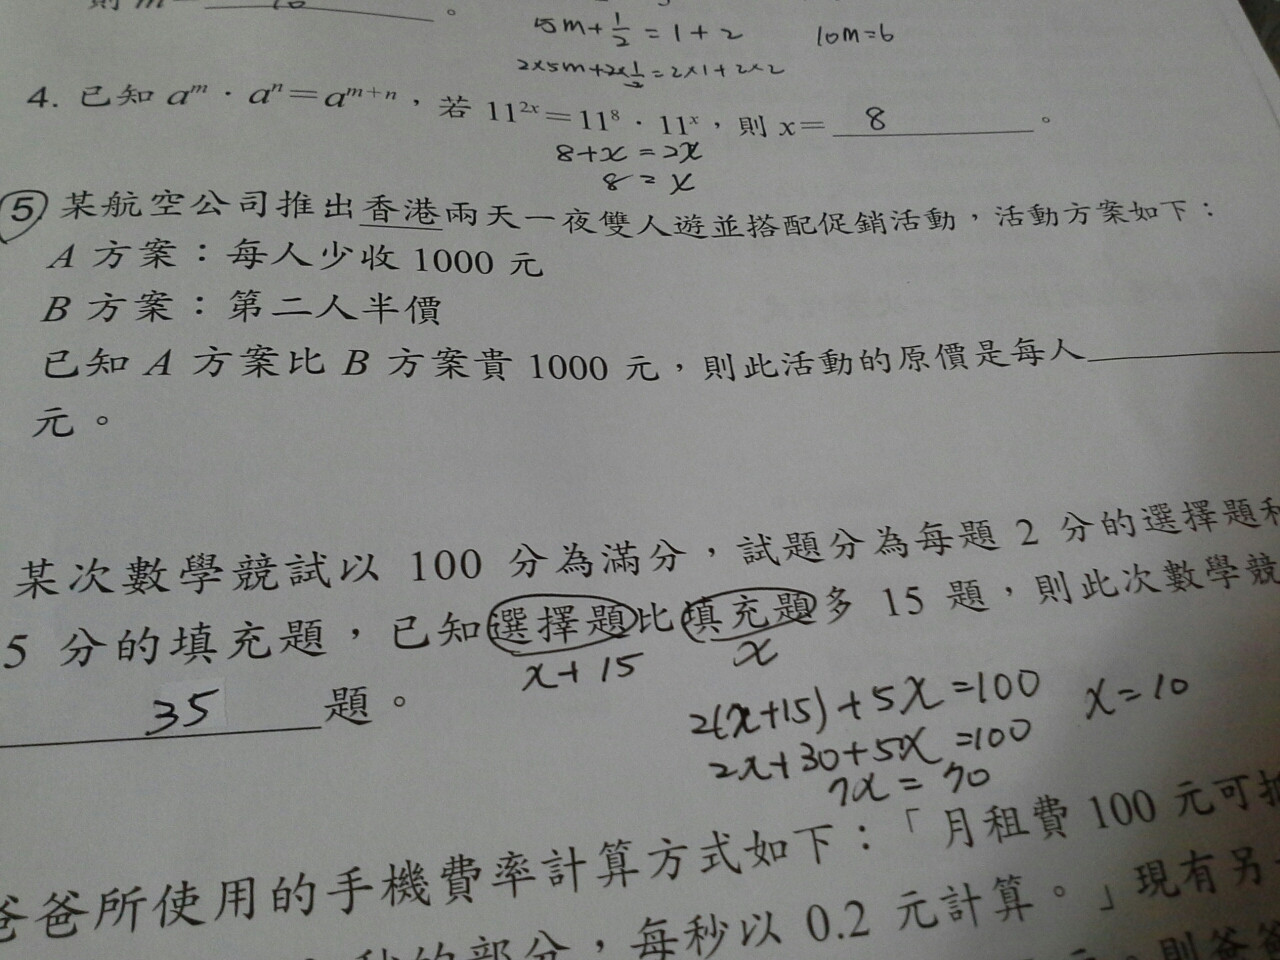 則 m=
5m+1/2=1+2 10m=6
2×5m+2×1/2=2×1+2×2
4. 已知 a^m · a^n=a^(m+n),若 11^(2x)=11^8 · 11^x,則 x= 8 。
8+x=2x
8=x
5 某航空公司推出香港兩天一夜雙人遊並搭配促銷活動,活動方案如下:
A 方案:每人少收 1000 元
B 方案:第二人半價
已知 A 方案比 B 方案貴 1000 元,則此活動的原價是每人
元。
某次數學競試以 100 分為滿分,試題分為每題 2 分的選擇題和
5 分的填充題,已知選擇題比填充題多 15 題,則此次數學競
x+15 x
35 題。
2(x+15)+5x=100 x=10
2x+30+5x=100
7x=70
爸爸所使用的手機費率計算方式如下:「月租費 100 元可抵
秒的部分,每秒以 0.2 元計算。」現有另
元。則爸爸